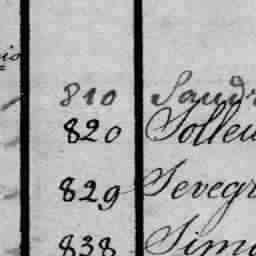 810 Saudr
820 Solleu
829 Sevegr
838 Sim